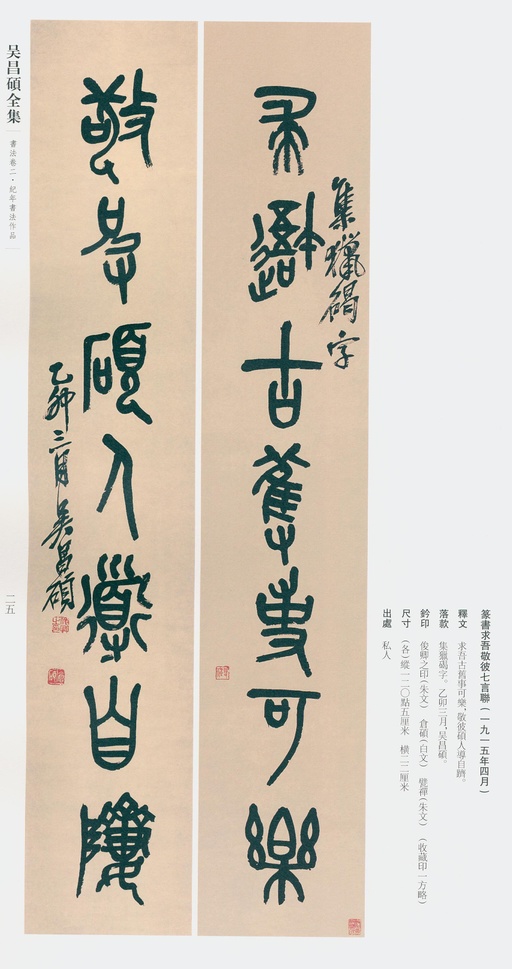 吴昌碩全集
書法卷二·紀年書法作品
篆書求吾敬彼七言聯(一九一五年四月)
釋文 求吾古舊事可樂,敬彼碩人導自躋。
落款 集獵碣字。乙卯三月,吴昌碩。
鈐印 俊卿之印(朱文) 倉碩(白文) 甓禪(朱文) (收藏印一方略)
尺寸 (各)縱一二〇點五厘米 橫二二厘米
出處 私人
集獵碣字
求吾古舊事可樂
敬彼碩人導自躋
乙卯三月吴昌碩
二五